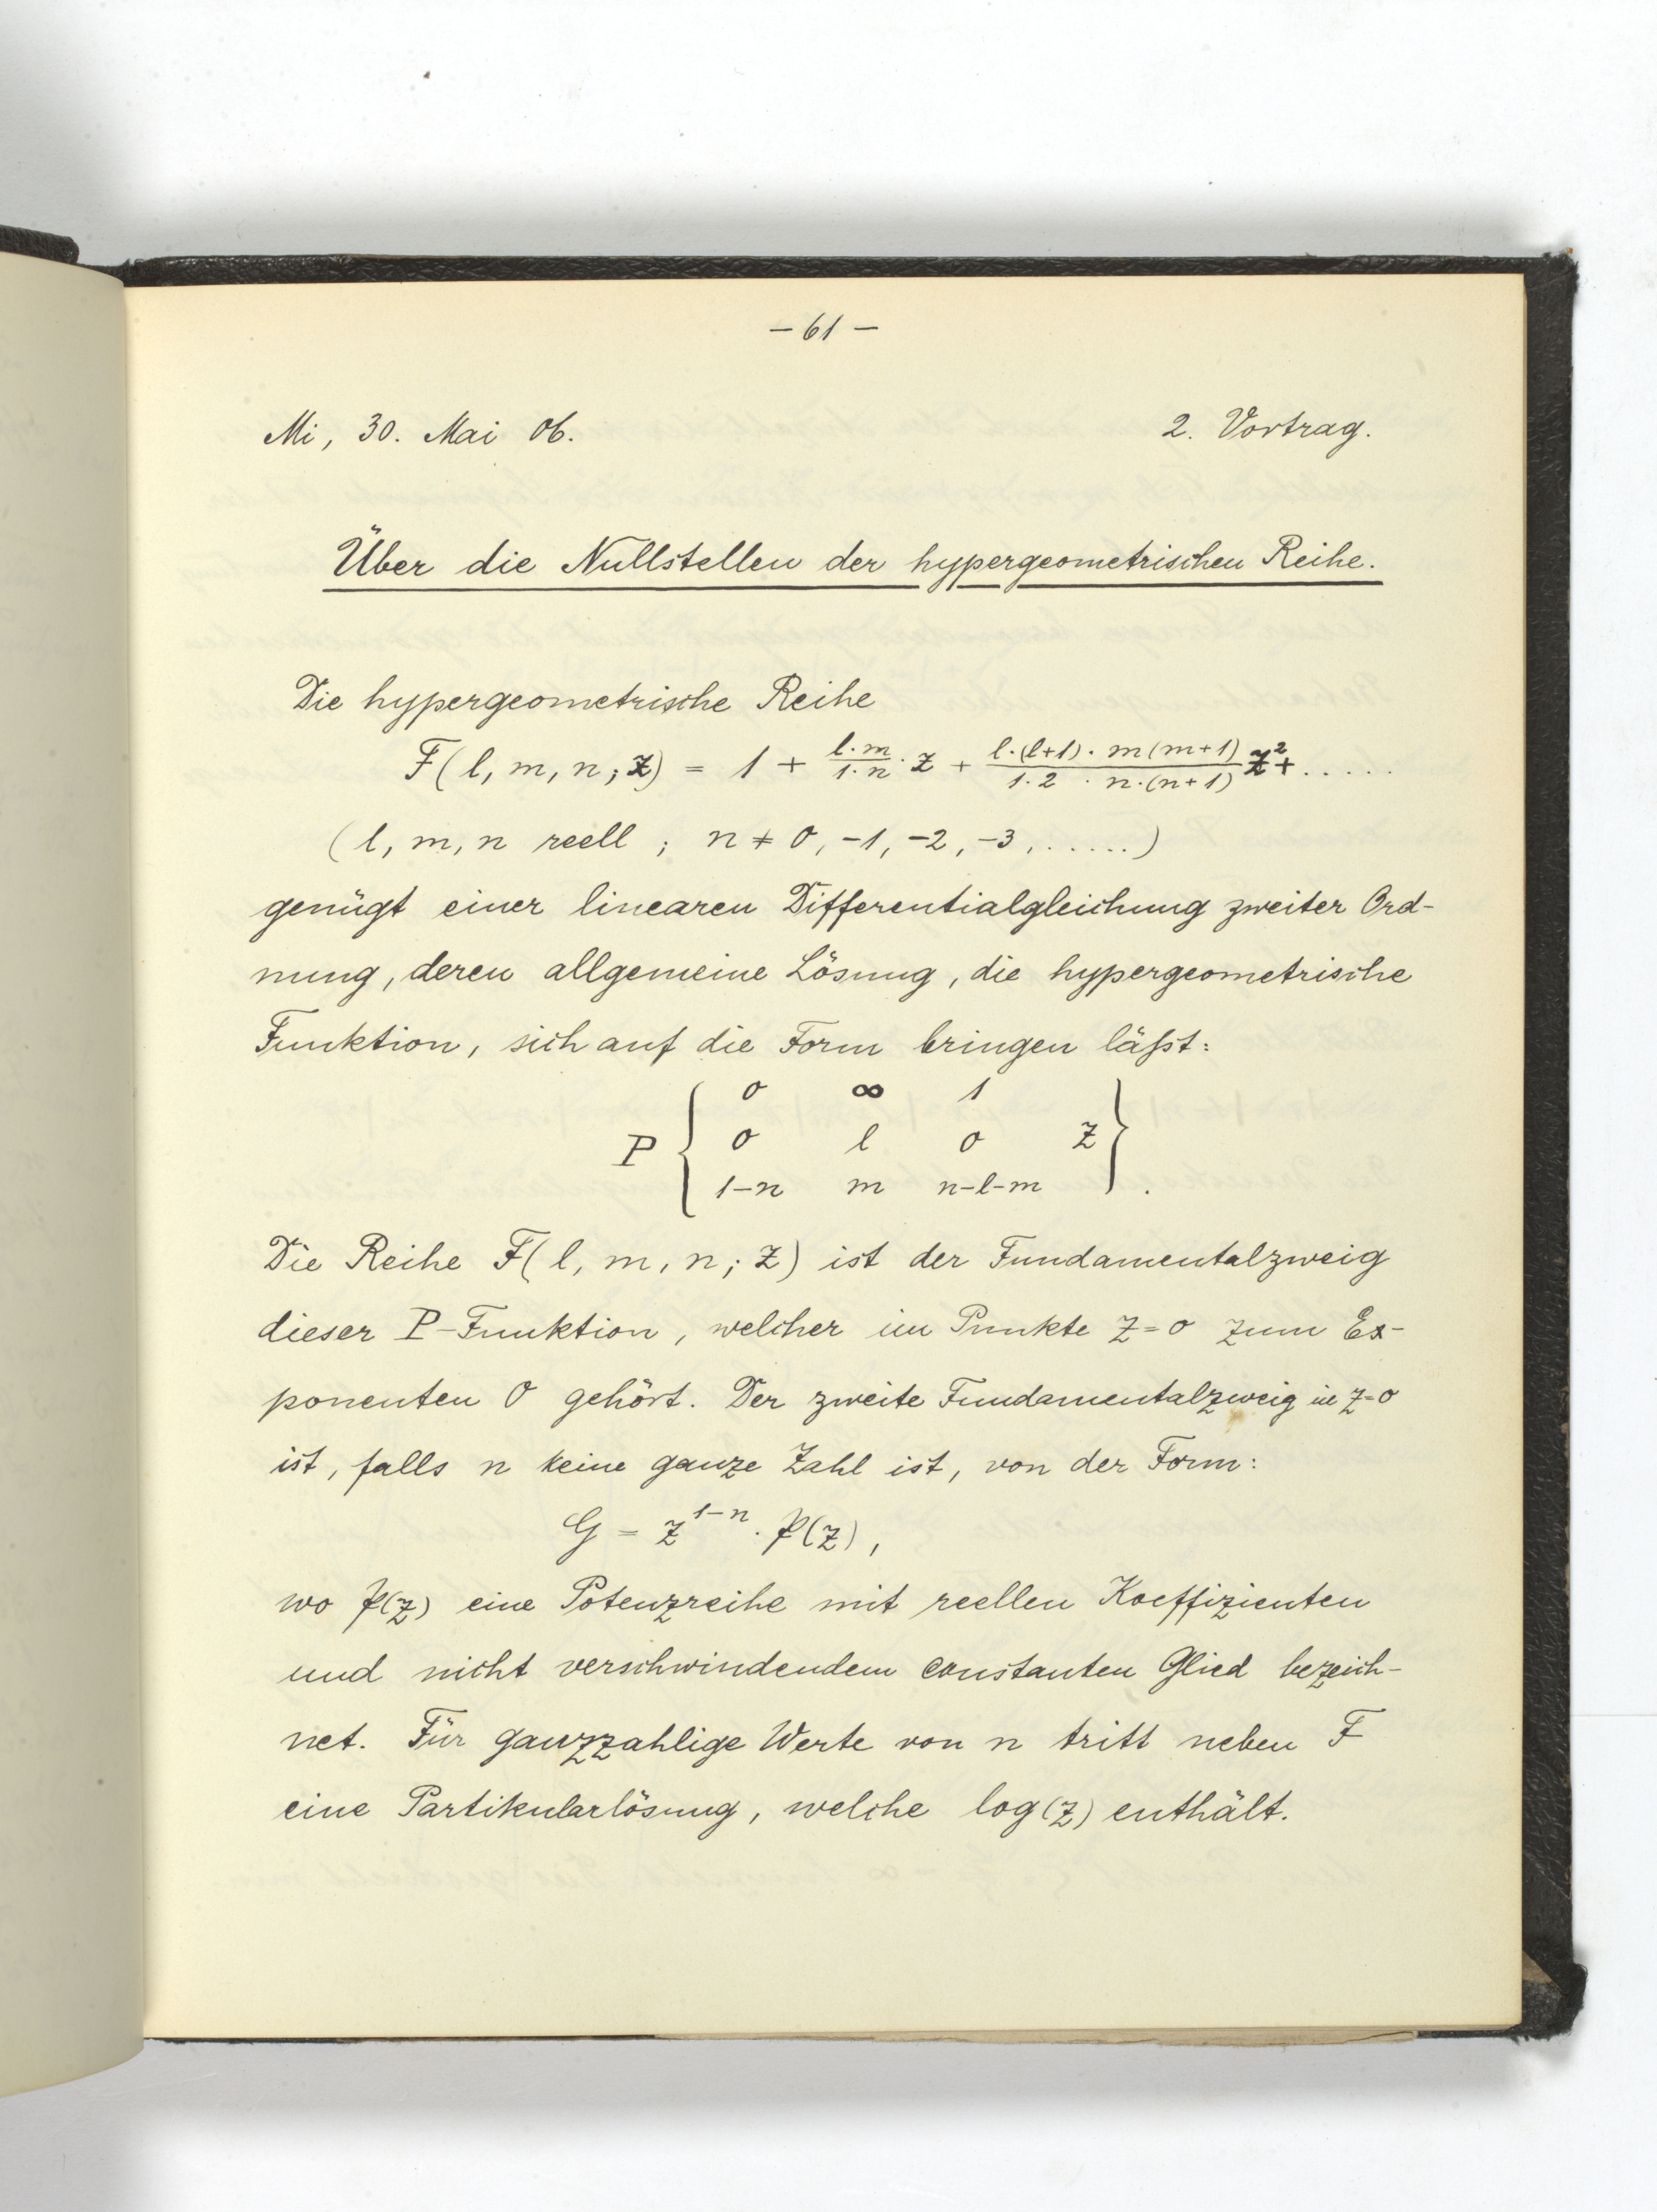 – 61 –
Mi, 30. Mai 06. 2. Vortrag.
Über die Nullstellen der hypergeometrischen Reihe.
Die hypergeometrische Reihe
F(l, m, n; z) = 1 + \frac{l·m}{1·n}·z + \frac{l·(l+1)·m(m+1)}{1·2·n·(n+1)} z² + .....
(l, m, n reell ; n ≠ 0, -1, -2, -3, ......)
genügt einer linearen Differentialgleichung zweiter Ord-
nung, deren allgemeine Lösung, die hypergeometrische
Funktion, sich auf die Form bringen läßt:
0 ∞ 1
P { 0 l 0 z }
1-n m n-l-m .
Die Reihe F(l, m, n; z) ist der Fundamentalzweig
dieser P-Funktion, welcher im Punkte z=0 zum Ex-
ponenten 0 gehört. Der zweite Fundamentalzweig in z=0
ist, falls n keine ganze Zahl ist, von der Form:
G = z^{1-n} · P(z),
wo P(z) eine Potenzreihe mit reellen Koeffizienten
und nicht verschwindendem constanten Glied bezeich-
net. Für ganzzahlige Werte von n tritt neben F
eine Partikularlösung, welche log(z) enthält.